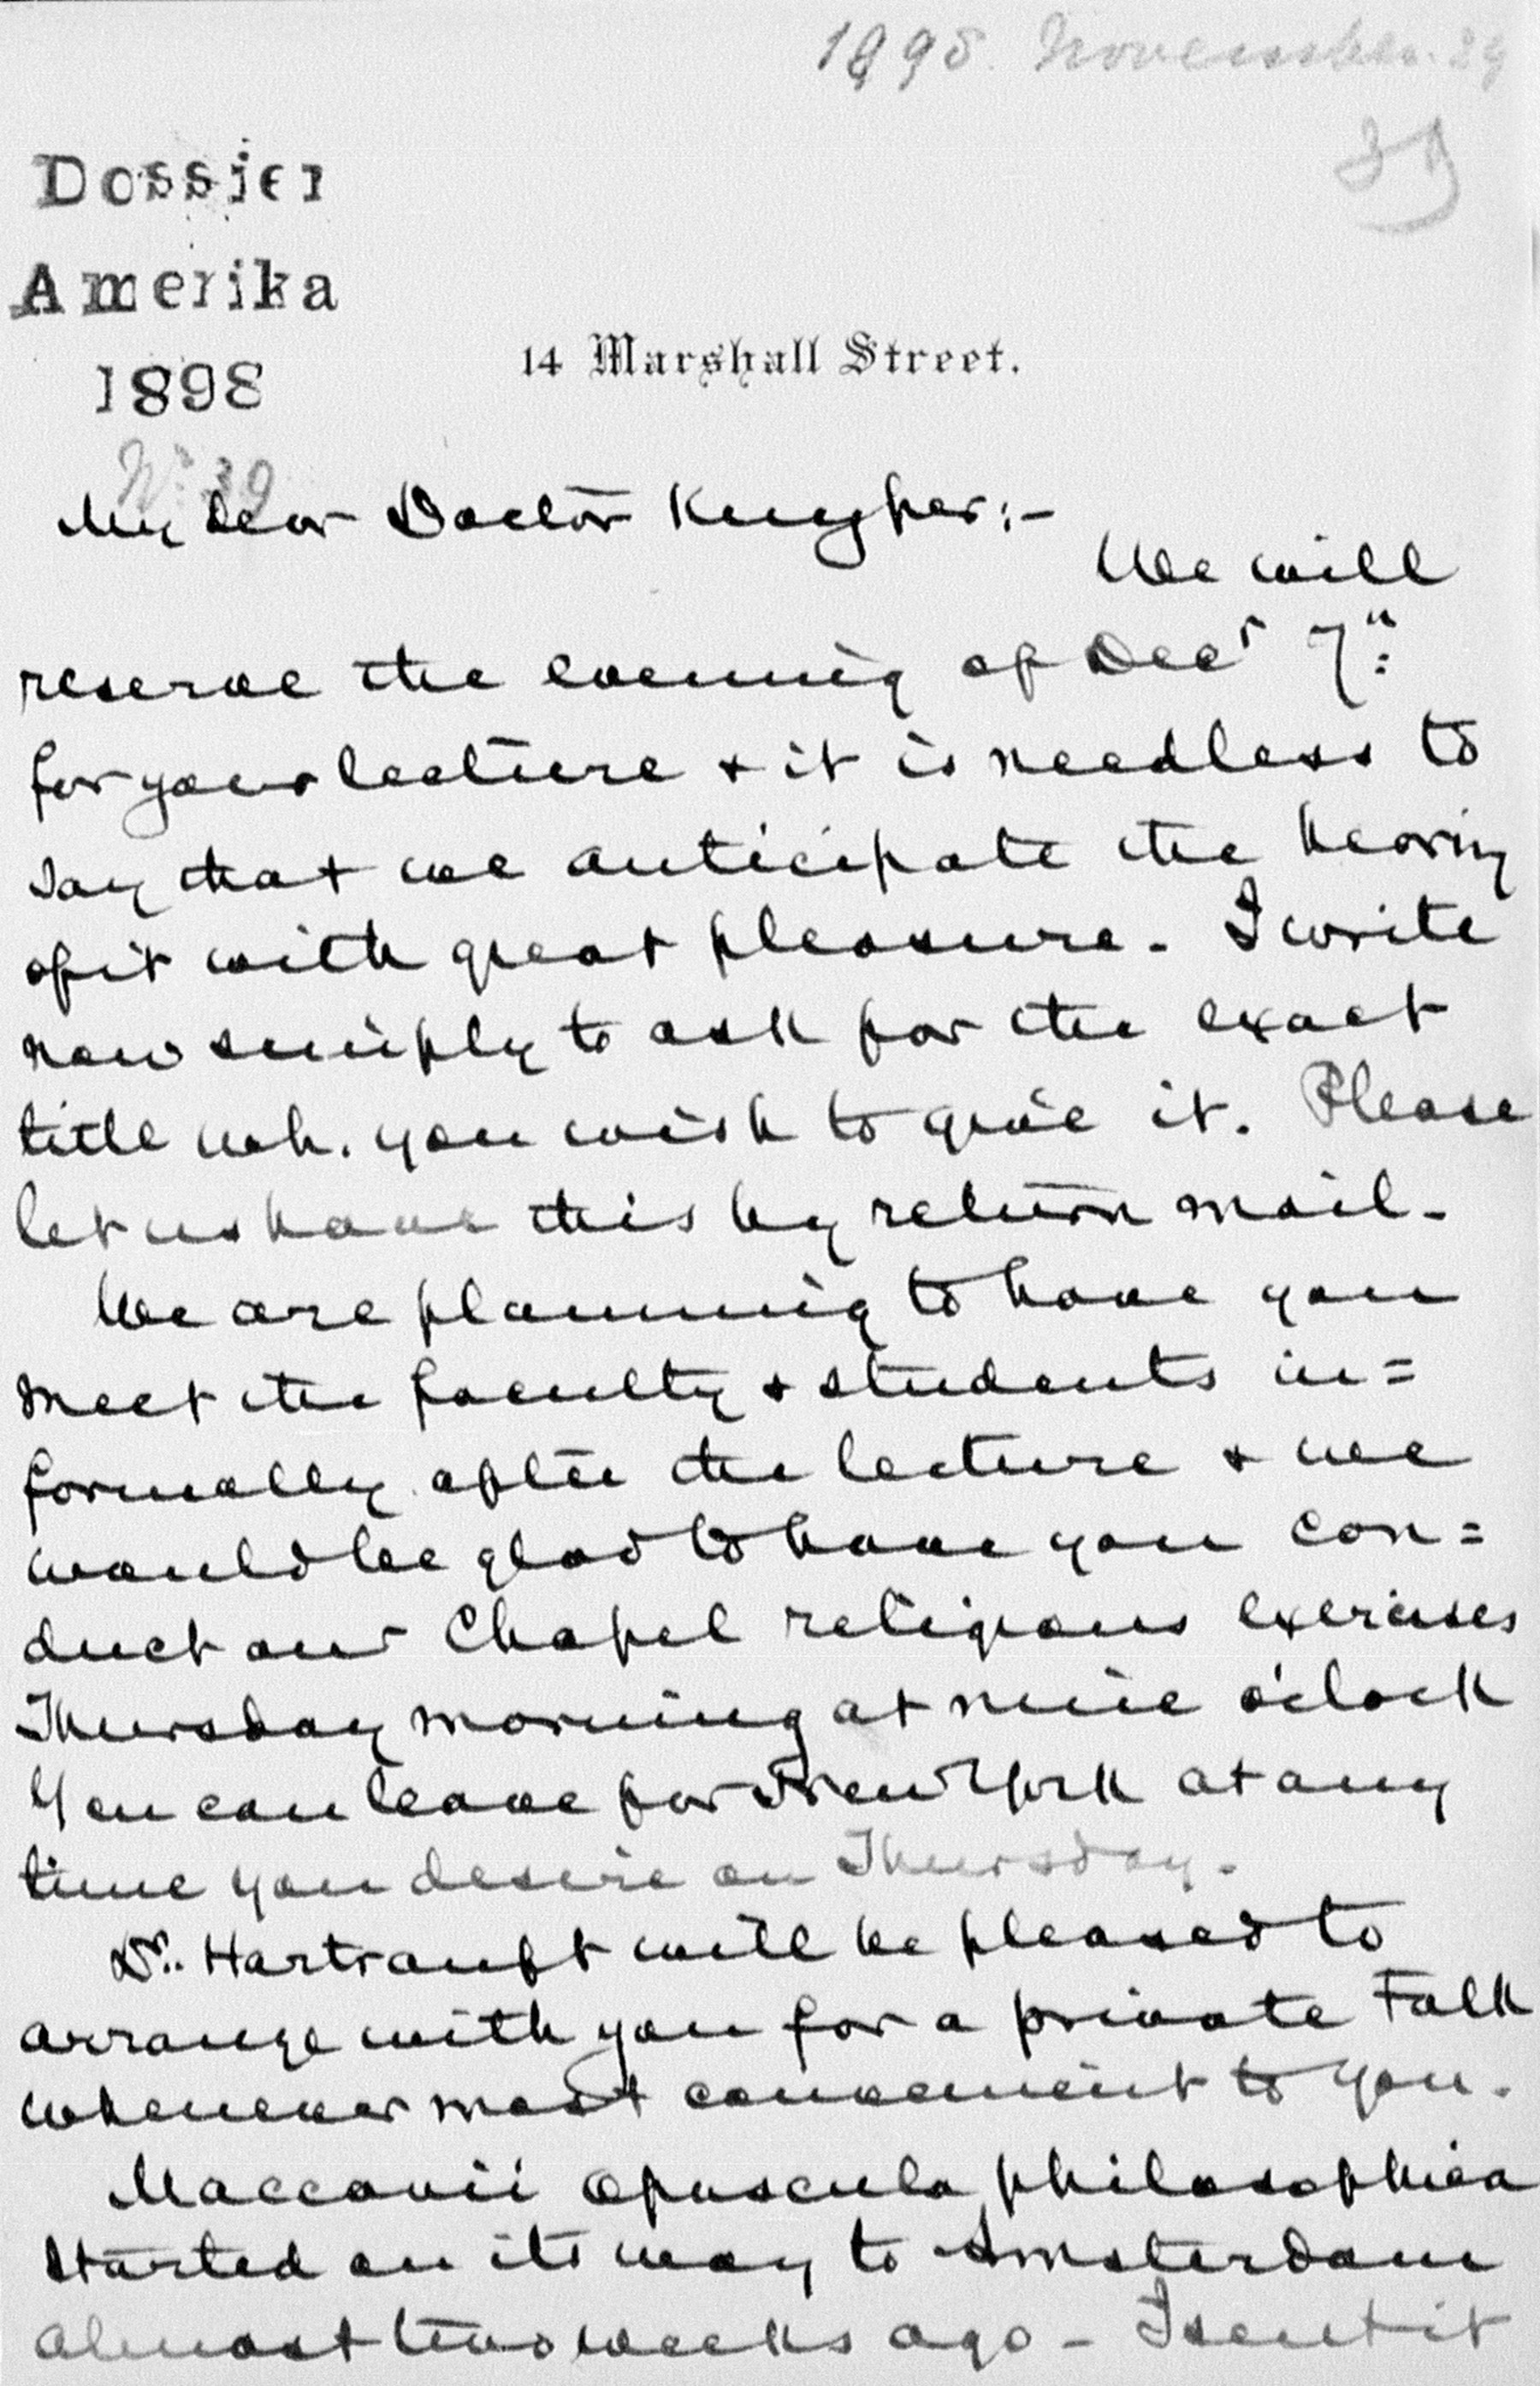 1898. November. 29
39
Dossier
Amerika
1898
14 Marshall Street.
No 39
My dear Doctor Kuyper:-
We will
reserve the evening of Decr 7":
for your lecture & it is needless to
say that we anticipate the hearing
of it with great pleasure. I write
now simply to ask for the exact
title wh. you wish to give it. Please
let us have this by return mail.
We are planning to have you
meet the faculty & students in=
formally after the lecture & we
would be glad to have you con=
duct our Chapel religious exercises
Thursday morning at nine o'clock
You can leave for New York at any
time you desire on Thursday.
Dr. Hartranft will be pleased to
arrange with you for a private talk
whenever most convenient to you.
Maccovii opuscula philosophica
started on its way to Amsterdam
almost two weeks ago - I sent it